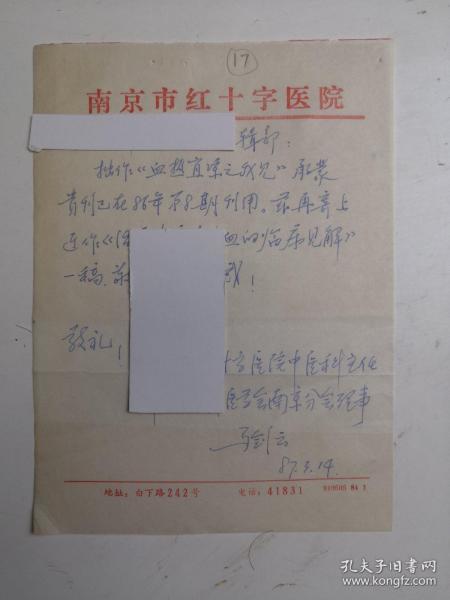 17
南京市红十字医院
辑部：
拙作《血热宜凉之我见》承蒙
贵刊已在86年第8期刊用。兹再寄上
近作《 血的临床见解》
一稿，
！
致礼！
十字医院中医科主任
医学会南京分会理事
87.3.14.
地址：白下路242号 电话：41831
孔夫子旧书网
www.kongfz.com